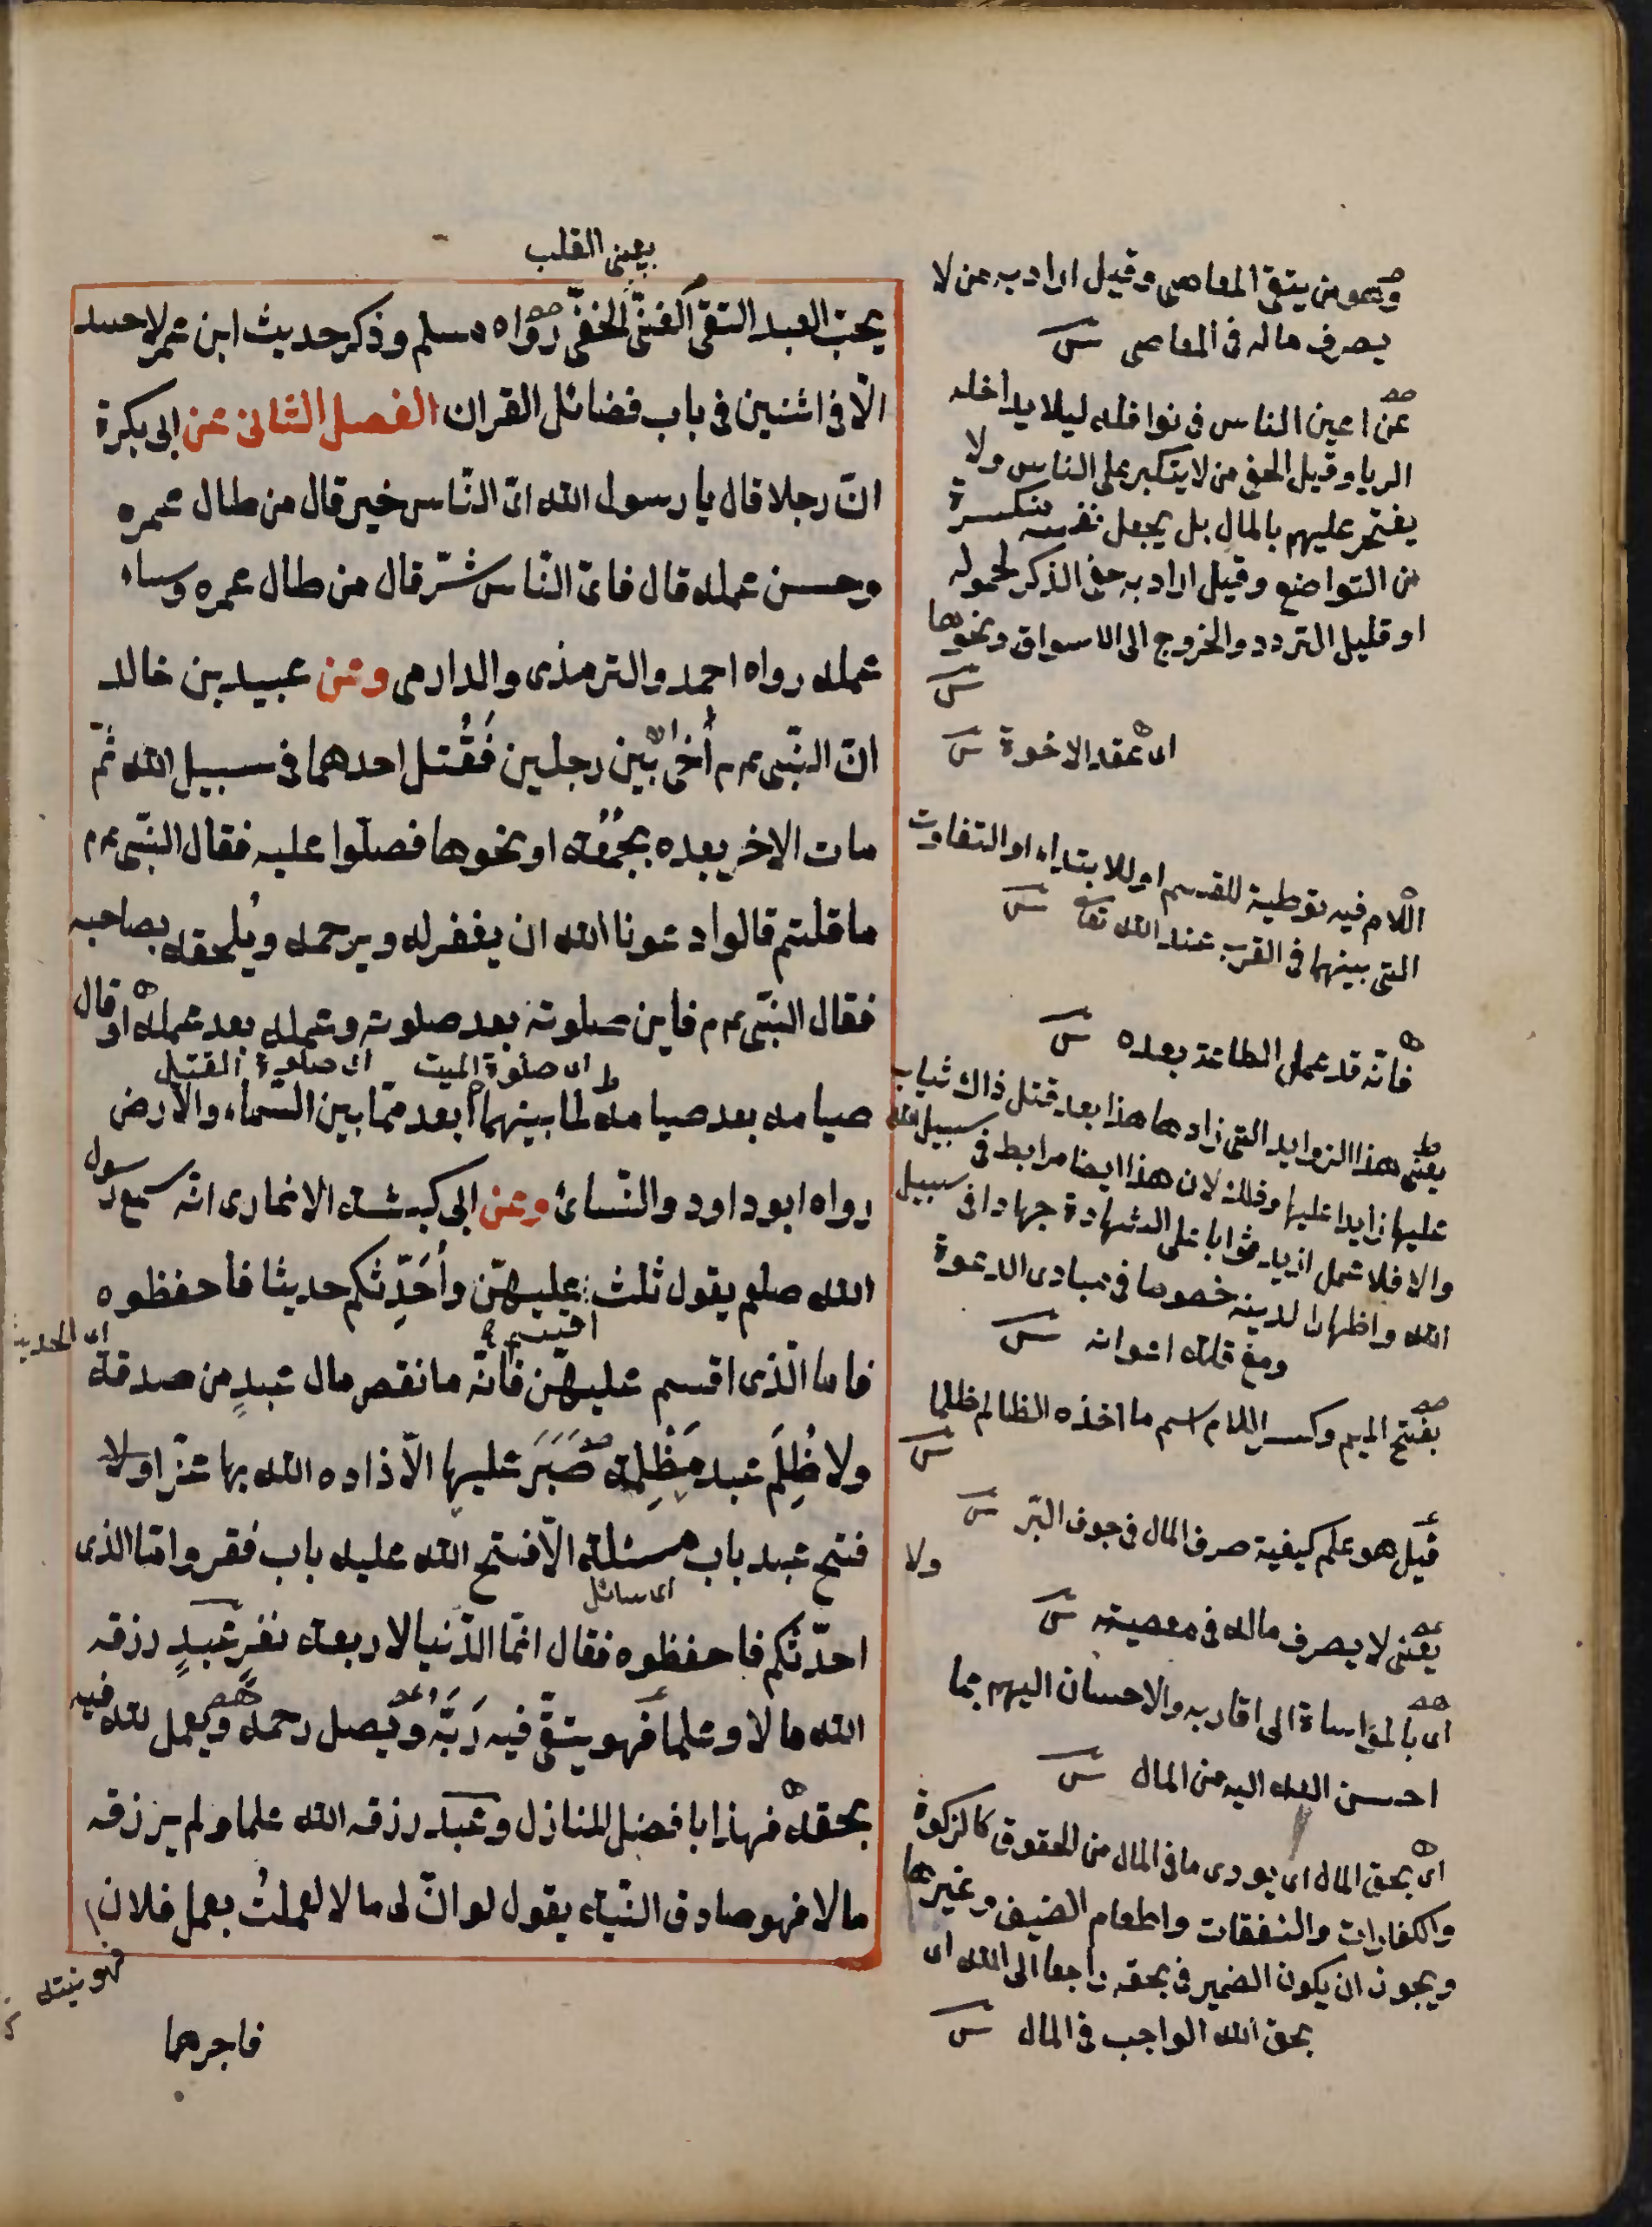 يعنى القلب
يحب العبد التقى الغنى الخفى رواه مسلم وذكر حديث ابن عمر لا حسد
الا فى اثنين فى باب فضائل القران الفصل الثانى عن ابى بكرة
ان رجلا قال يا رسول الله اى الناس خير قال من طال عمره
وحسن عمله قال فاى الناس شر قال من طال عمره وساء
عمله رواه احمد والترمذى والدارمى وعن عبيد بن خالد
ان النبى عم اخى بين رجلين فقتل احدهما فى سبيل الله ثم
مات الاخر بعده بجمعة او نحوها فصلوا عليه فقال النبى عم
ما قلتم قالوا دعونا الله ان يغفر له ويرحمه ويلحقه بصاحبه
فقال النبى عم فاين صلوته بعد صلوته وعمله بعد عمله او قال
اى صلوة الميت اى صلوة القتيل
صيامه بعد صيامه لما بينهما ابعد مما بين السماء والارض
رواه ابو داود والنسائ وعن ابى كبشة الانمارى انه سمع رسول
الله صلعم يقول ثلث اقسم عليهن واحدثكم حديثا فاحفظوه
اى الحديث
فاما الذى اقسم عليهن فانه ما نقص مال عبد من صدقة
ولا ظلم عبد مظلمة صبر عليها الا زاده الله بها عزا ولا
فتح عبد باب مسئلة الا فتح الله عليه باب فقر واما الذى
اى سائل
احدثكم فاحفظوه فقال انما الدنيا لاربعة نفر عبد رزقه
الله مالا وعلما فهو يتقى فيه ربه ويصل رحمه ويعمل لله فيه
بحقه فهذا بافضل المنازل وعبد رزقه الله علما ولم يرزقه
مالا فهو صادق النية يقول لو ان لى مالا لعملت بعمل فلان
فهو نيته
فاجرهما
وهو من يتقى المعاصى وقيل اراد به من لا
يصرف ماله فى المعاصى
عن اعين الناس فى نوافله ليلا يداخله
الريا وقيل الخفى من لا يتكبر على الناس ولا
يفتخر عليهم بالمال بل يجعل نفسه منكسرة
من التواضع وقيل اراد به خفى الذكر لخموله
او قليل التردد والخروج الى الاسواق ونحوها
اى عقد الاخوة
اللام فيه توطية للقسم او للابتداء او التفاوت
التى بينهما فى القرب عند الله تعا
فانه قد عمل الطاعة بعده
يعنى هذا الزوايد التى زادها هذا بعد قتل ذاك ثياب
عليها زايدا عليها وذلك لان هذا ايضا مرابط فى سبيل الله
والا فلا عمل ازيد ثوابا على الشهادة جهادا فى سبيل
الله واظهارا لدينه خصوصا فى مبادى الدعوة
ومع قلة اعوانه
بفتح الميم وكسر اللام اسم ما اخذه الظالم ظلما
قيل هو علم كيفية صرف المال فى جوف البر
ولا
يعنى لا يصرف ماله فى معصيته
اى بالمواساة الى اقاربه والاحسان اليهم بما
احسن الله اليه من المال
اى بحق المال اى يودى ما فى المال من الحقوق كالزكوة
والكفارات والنفقات واطعام الضيف وغيرها
ويجوز ان يكون الضمير فى بحقه راجعا الى الله اى
بحق الله الواجب فى المال